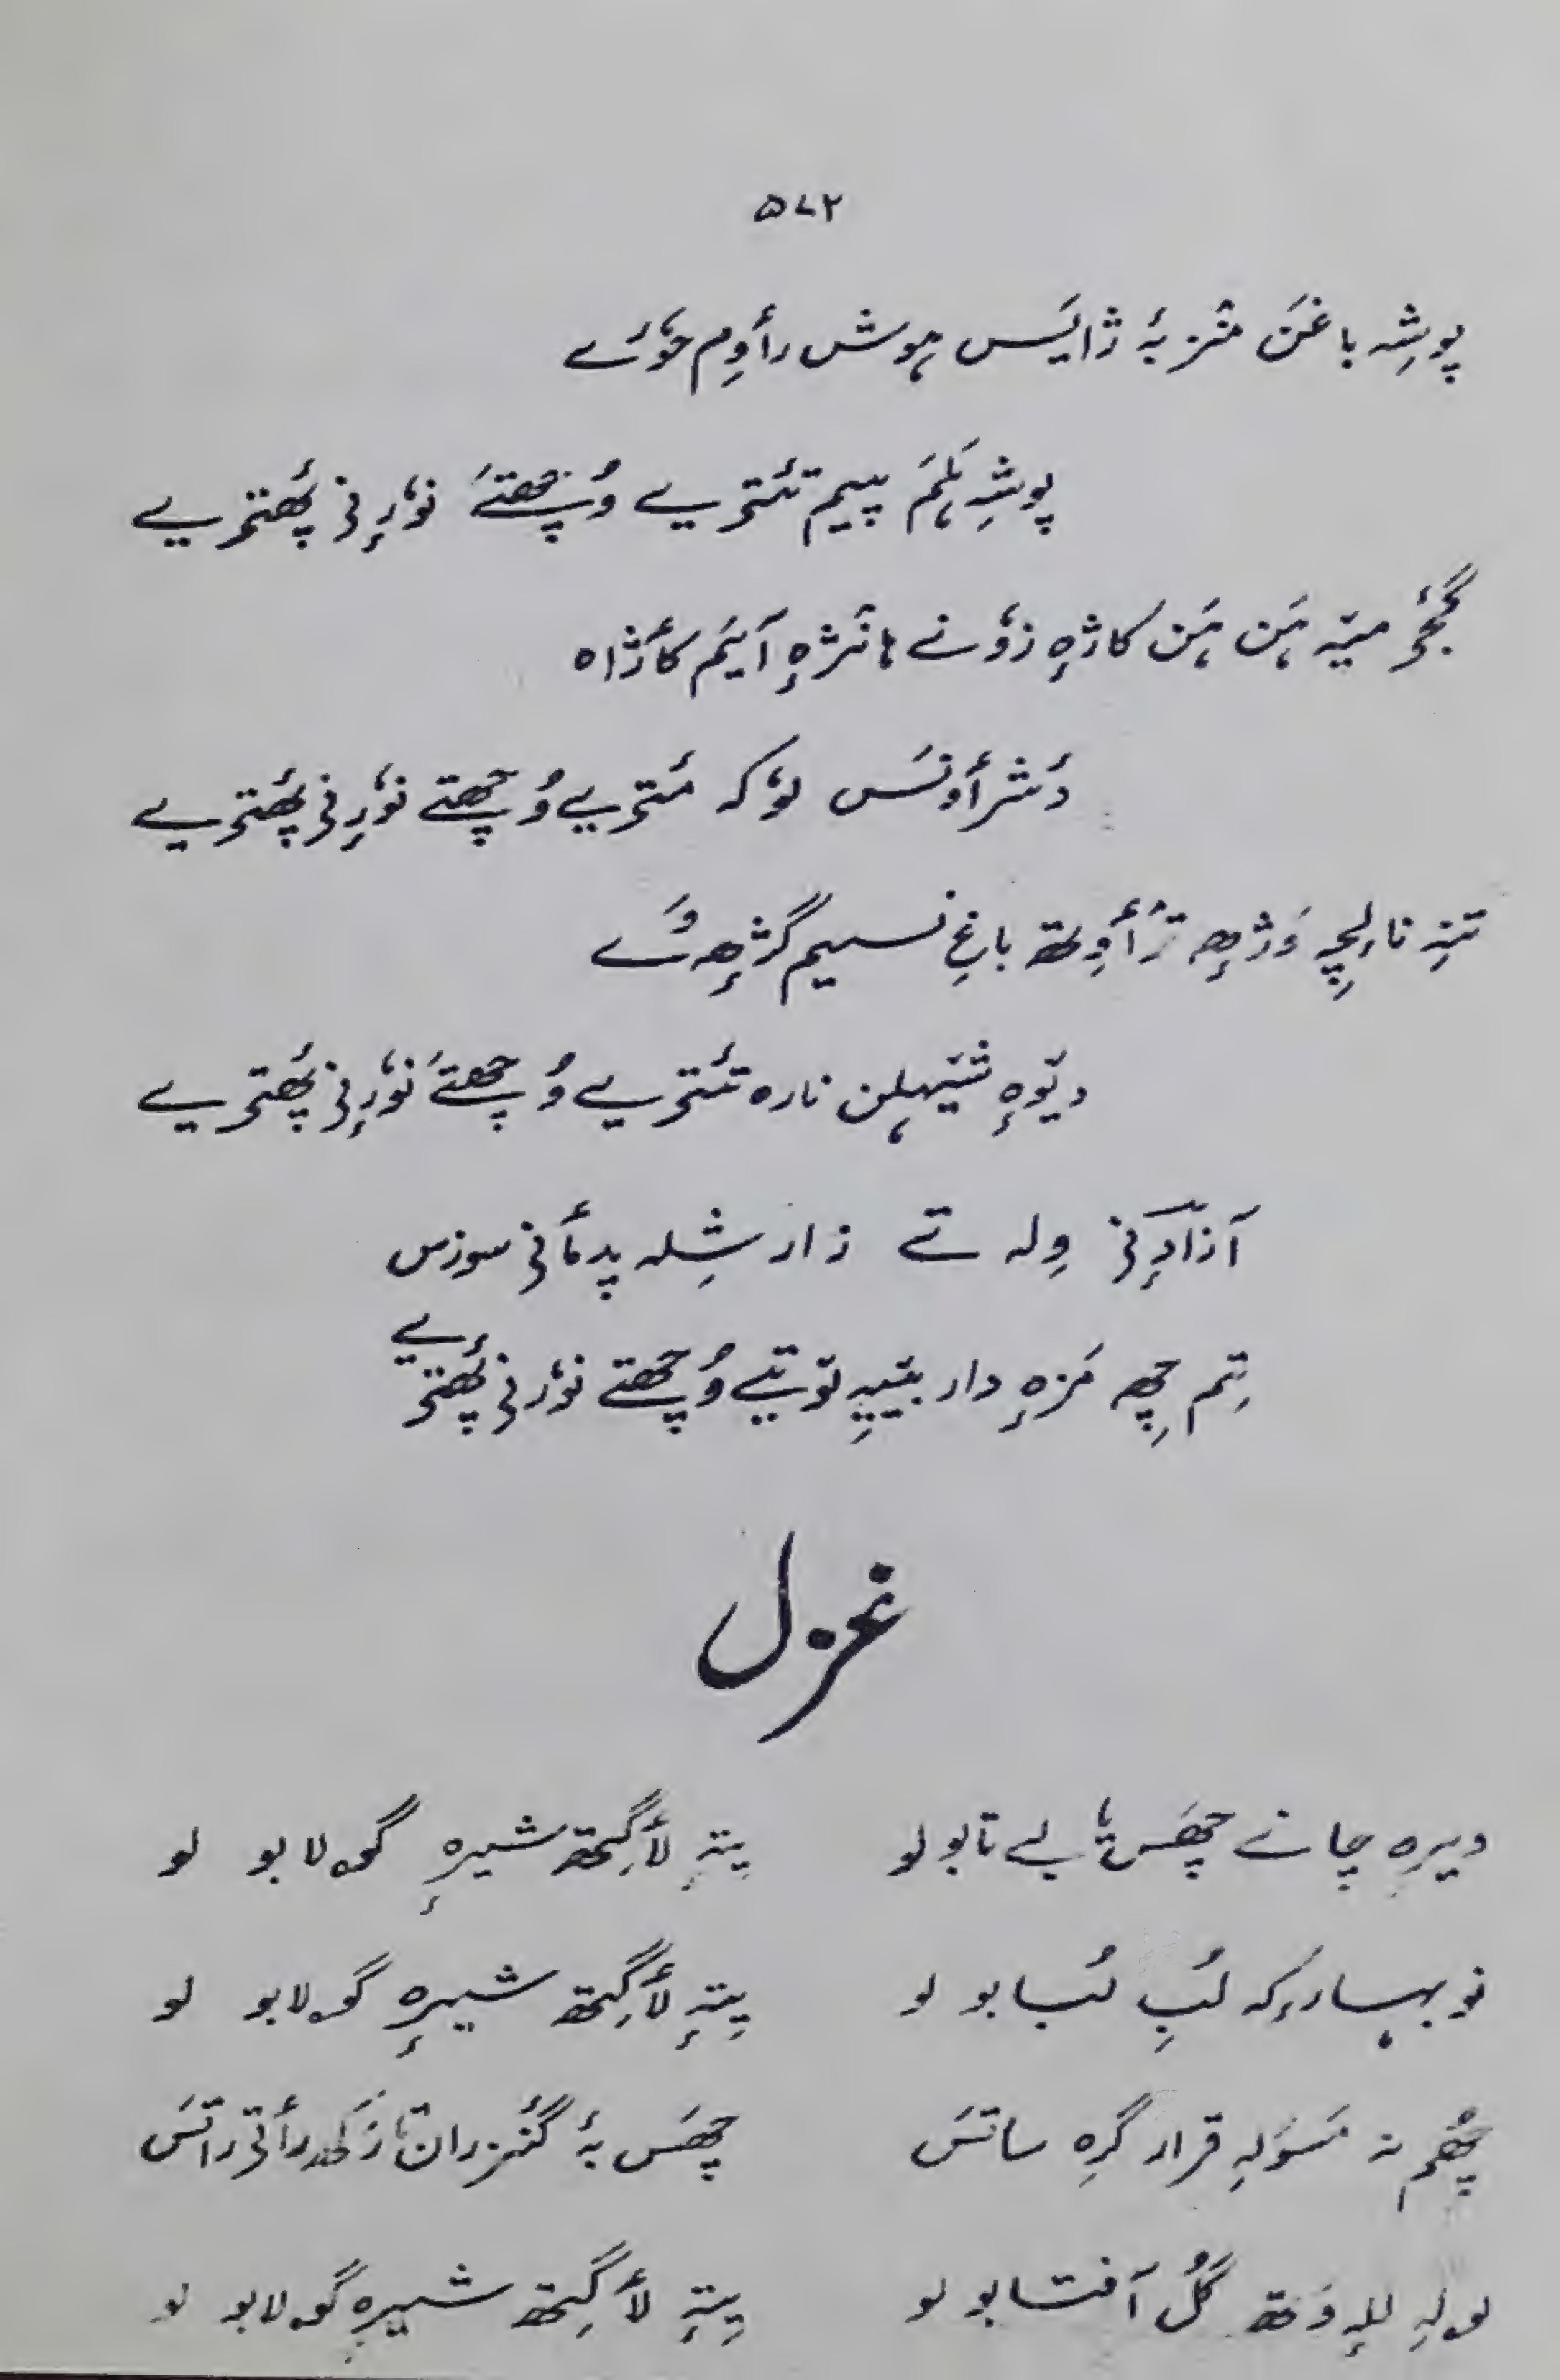 ۵۷۲
پوشِہ باغَن منٛز بہٕ ژایَس ہوش رٲوِم حوٗرے
پوشِہ ہُنٛم پییم تٔتریے وُچھتے نوٗرٕنی پھٔتریے
گٔجٕ میتہ ہَن ہَن کاژٕہ زوٗنے ہانٛژٕہ آیَم کٲژاہ
دٔشرٲونَس لوٗکہ مٔتریے وُچھتے نوٗرٕنی پھٔتریے
تتہِ نالٕچہِ وَژھٕ ترٲوِتھ باغِ نسیم گژھٕ تَے
دیوٕہ شیہلن نارہ تٔتریے وُچھتے نوٗرٕنی پھٔتریے
آزادٕنی وِلہ تے زار شِلہ پدمٲنی سوزس
تِم چھِہ مزٕہ دار بییہِ توتیے وُچھتے نوٗرٕنی پھٔتریے
غزل
دیرہ چانے چھَس بے تابو لو
پتہٕ لٲگِتھ شیرٕہ گۄلابو لو
نو بہارُکہ لُبِ لُبابو لو
پتہٕ لٲگِتھ شیرٕہ گۄلابو لو
چھُم نہ مَسوَلہِ قرار گرِہ ساتَس
چھَس بہٕ گنٛزران تارَکھ رٲتی راتَس
لولہِ للہٕ وَتھ گُل آفتابو لو
پتہٕ لٲگِتھ شیرٕہ گۄلابو لو